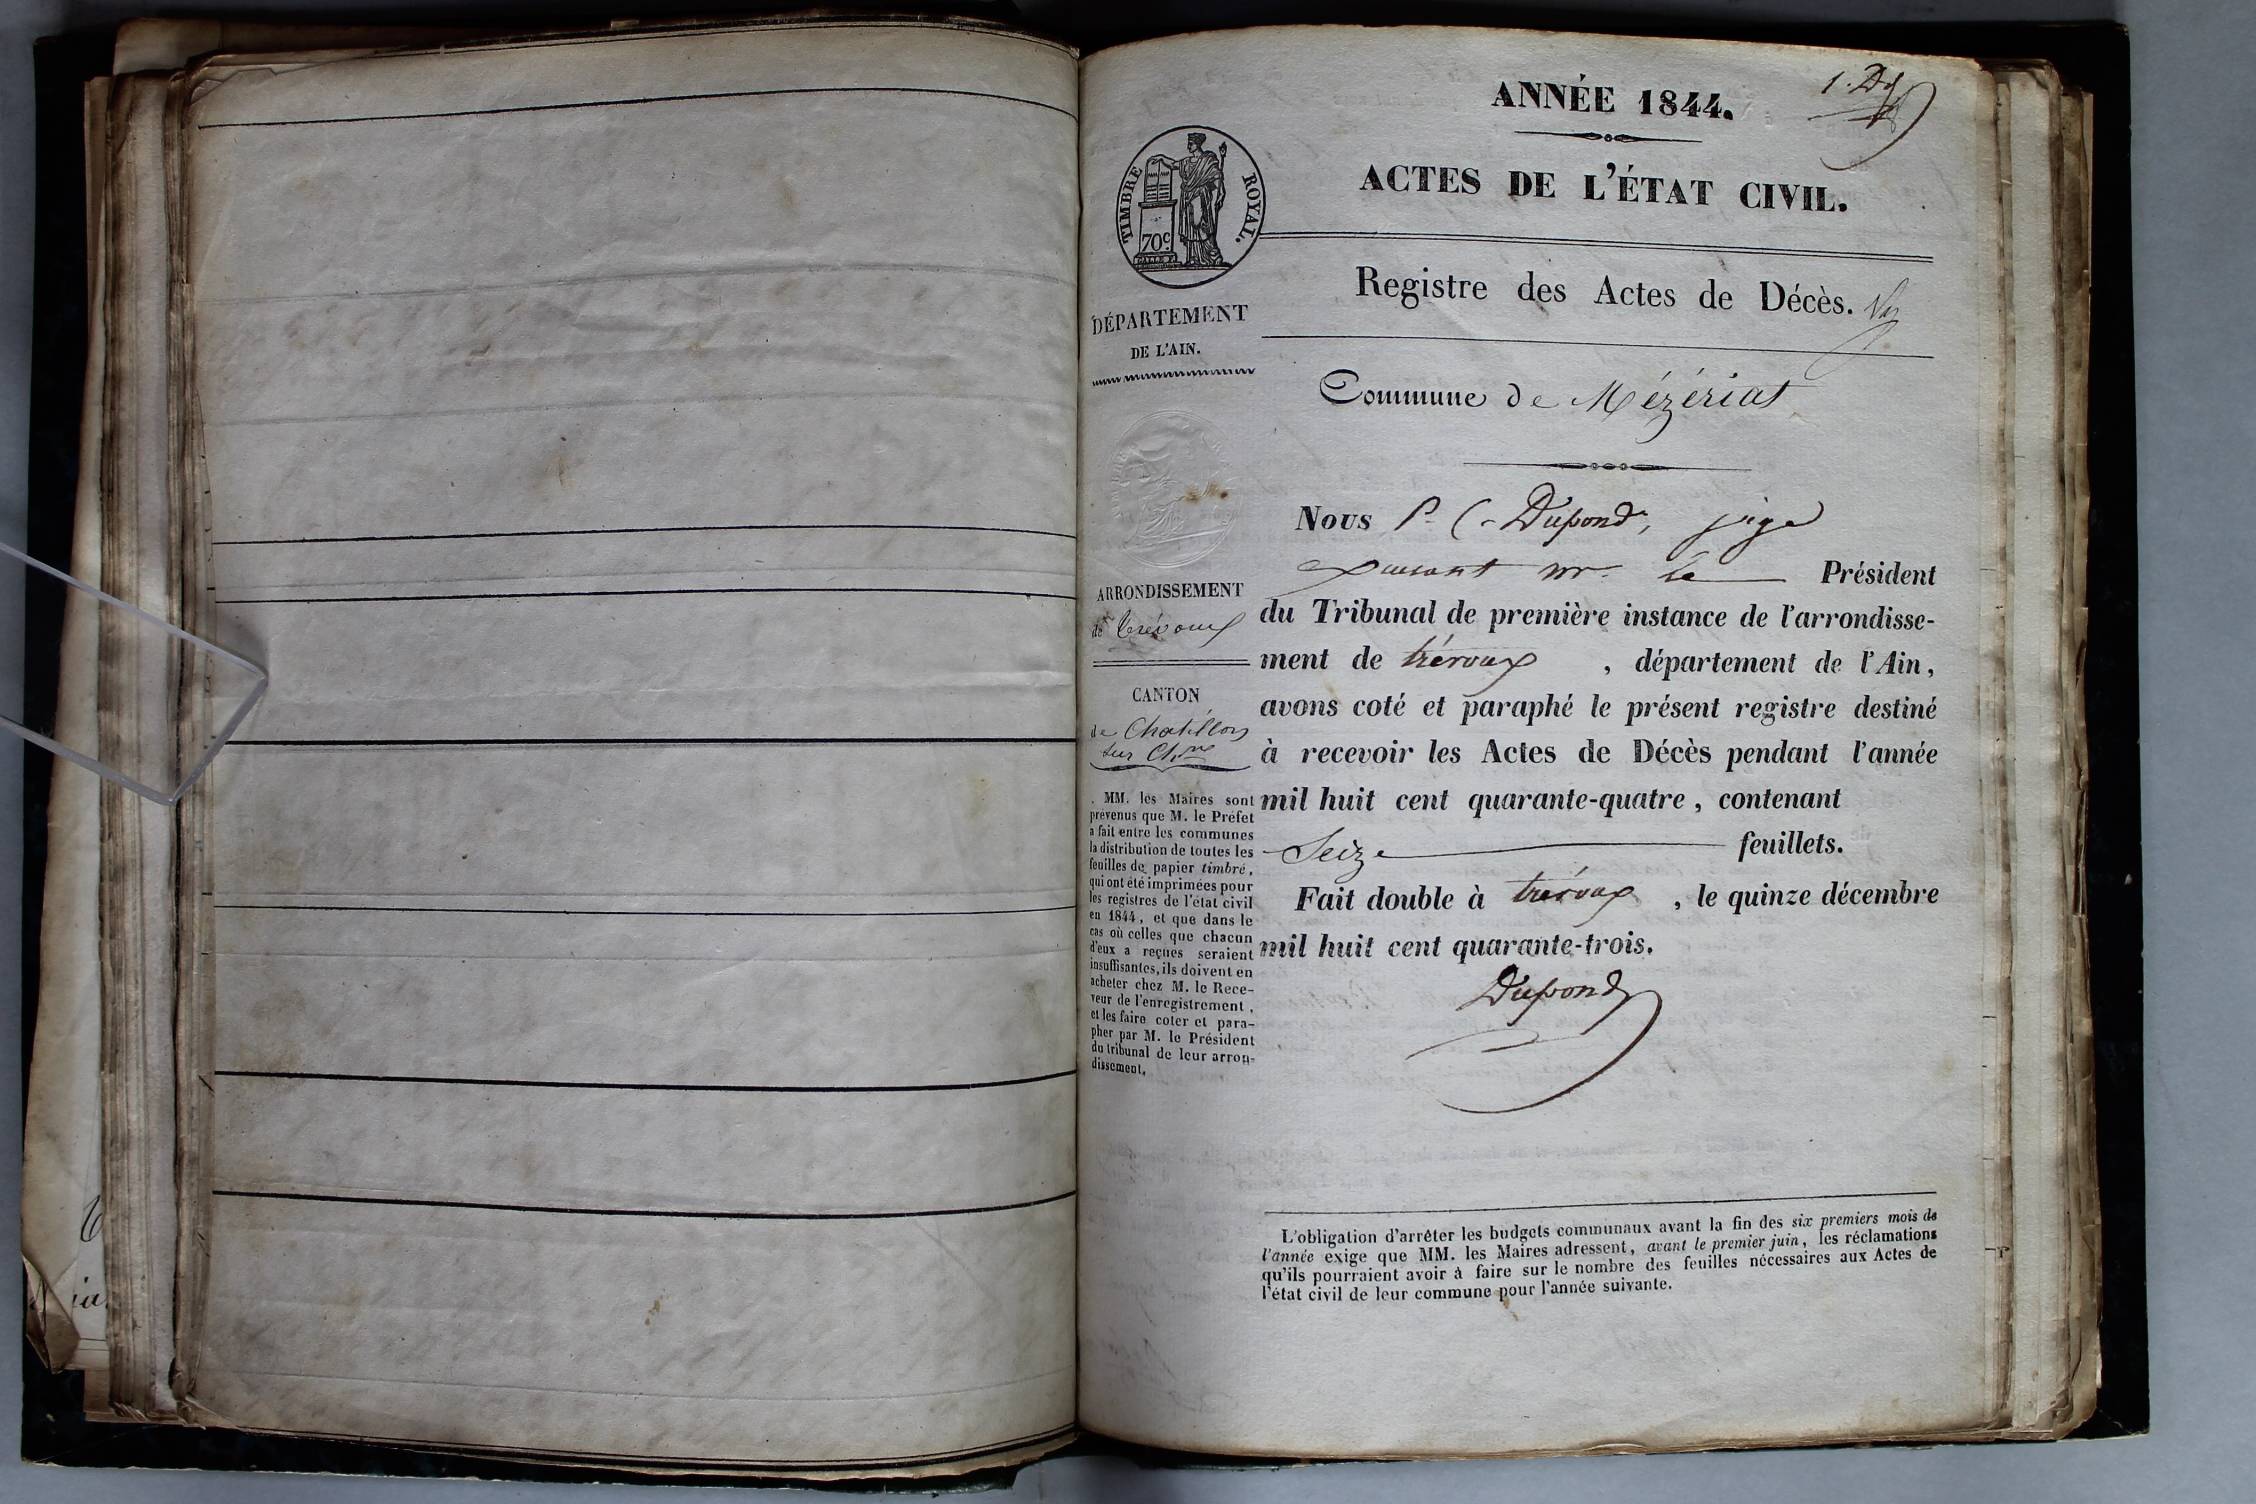 ANNÉE 1844.
ACTES DE L'ÉTAT CIVIL.
TIMBRE ROYAL.
70c
Registre des Actes de Décès.
DÉPARTEMENT
DE L'AIN.
Commune de Mézériat
Nous P. C. Dupond, juge
Président
du Tribunal de première instance de l'arrondisse-
ment de trévoux, département de l'Ain,
avons coté et paraphé le présent registre destiné
à recevoir les Actes de Décès pendant l'année
mil huit cent quarante-quatre, contenant
Seize feuillets.
Fait double à trévoux, le quinze décembre
mil huit cent quarante-trois.
Dupond
ARRONDISSEMENT
de trévoux
CANTON
de Chatillon
sur Ch.ne
MM. les Maires sont
prévenus que M. le Préfet
a fait entre les communes
la distribution de toutes les
feuilles de papier timbré,
qui ont été imprimées pour
les registres de l'état civil
en 1844, et que dans le
cas où celles que chacun
d'eux a reçues seraient
insuffisantes, ils doivent en
acheter chez M. le Rece-
veur de l'enregistrement,
et les faire coter et para-
pher par M. le Président
du tribunal de leur arron-
dissement.
L'obligation d'arrêter les budgets communaux avant la fin des six premiers mois de
l'année exige que MM. les Maires adressent, avant le premier juin, les réclamations
qu'ils pourraient avoir à faire sur le nombre des feuilles nécessaires aux Actes de
l'état civil de leur commune pour l'année suivante.